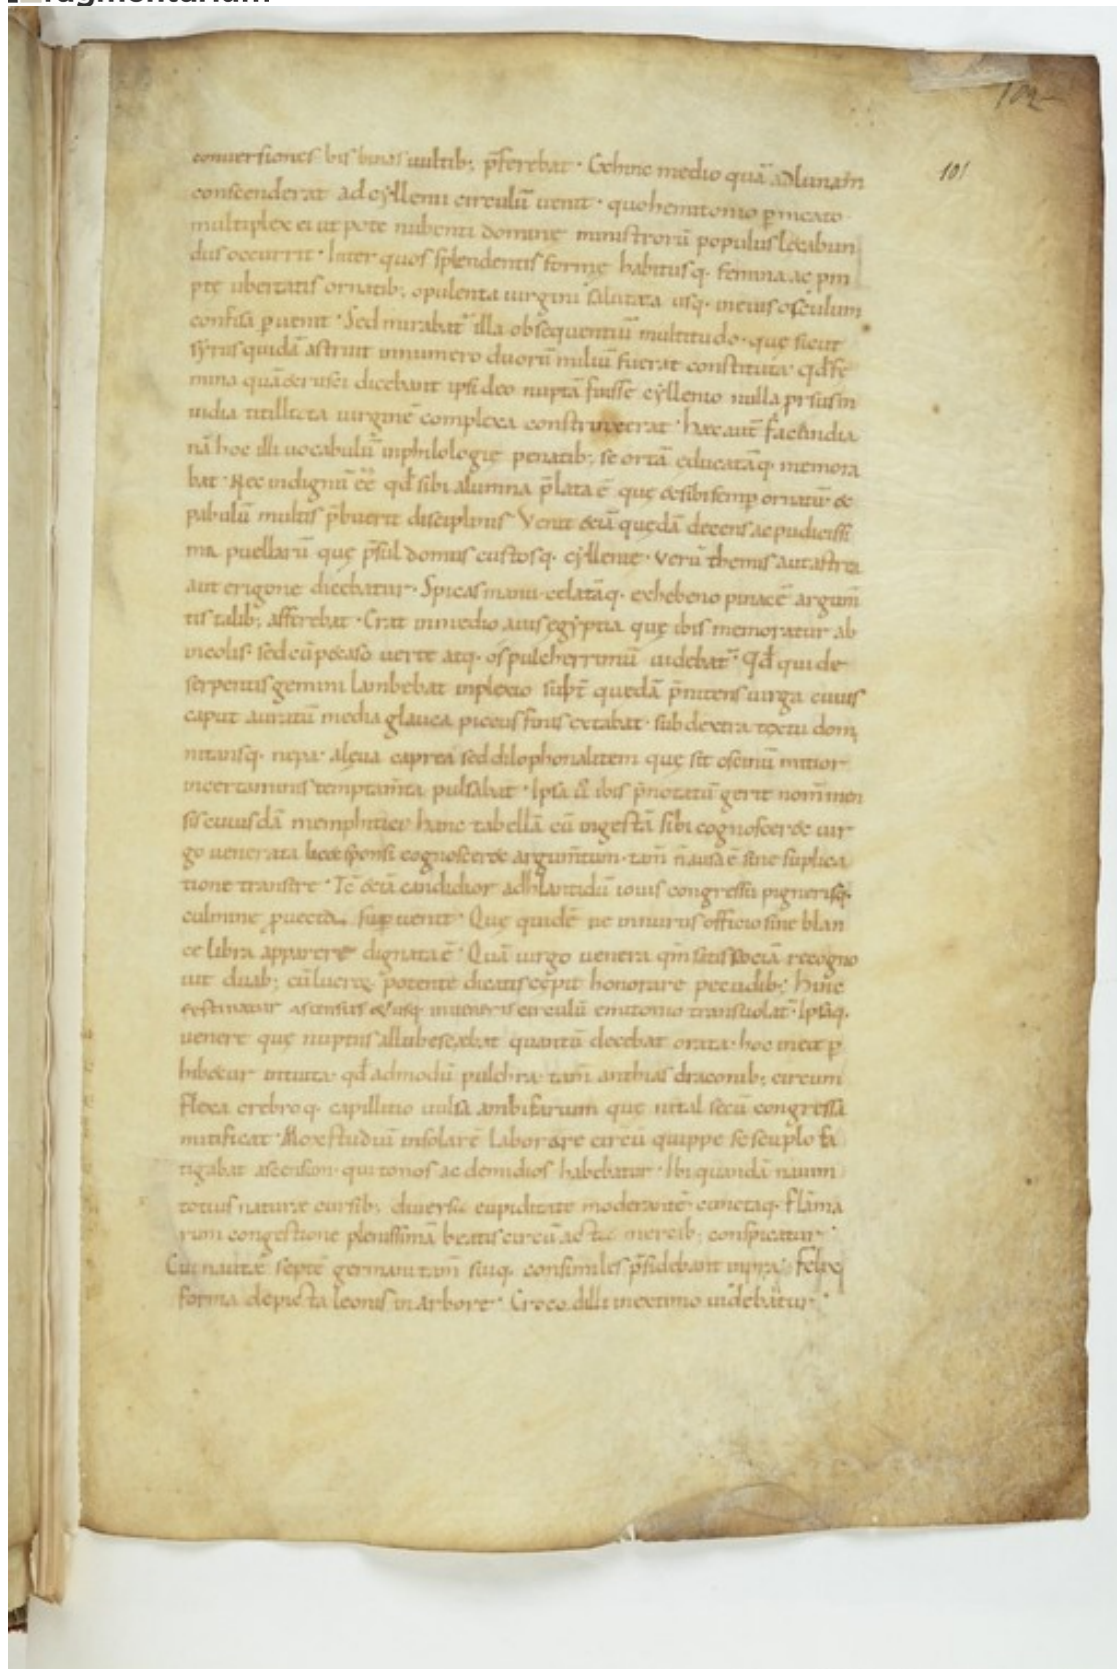 fragmentarium
102
101
conuersiones bis binas uultib; p̄ferebat · Ex hinc medio quā ad lunam
conscenderat ad cyllenii circulū uenit · quo hemitonio ꝑmeato
multiplex ei ut pote nubenti dominę ministrorū populus lętabun
dus occurrit · Inter quos splendentis formę habitusq· femina ac pm
ptę ubertatis ornatib; opulenta uirgini salutata usq· in eius osculum
confisa ꝑuenit · Sed mirabat᷑ illa obsequentiū multitudo · quę sicut
syrus quidā astruit innumero duorū miliū fuerat constituta · qđ fe
mina quā &rusci dicebant ipsi deo nuptā fuisse cyllenio nulla prsus in
uidia titillata uirginē complexa constrinxerat · haec aut̄ facundia
nā hoc illi uocabulū in philologię penatib; se ortā educatāq· memora
bat · Nec indignū ēē qđ sibi alumna p̄lata ē quę & sibi semꝑ ornatū &
pabulū multis p̄buerit disciplinis Venit &iā quędā decens ac pudicissi
ma puellarū quę p̄sul domus custosq· cyllenię · Verū themis aut astrea
aut erigone dicebatur · Spicas manu cęlatāq· ex hebeno pinacē argum̄
tis talib; afferebat · Erat in medio auis egyptia quę ibis memoratur ab
incolis · sed cū p&aso uertice atq· os pulcherrimū uidebat᷑ · Qđ quide
serpentis gemini lambebat inplexio subt̄ quedā p̄nitens uirga cuius
caput auratū media glauca piceus finis extabat · sub dextra testudo mi
nitansq· nepa · a lęua caprea sed dilophon alitem quę sit oscinū mitior
in certaminis temptam̄ta pulsabat · Ipsa ū ibis p̄notatū gerit nom̄ men
sis cuiusdā memphitici hanc tabellā cū ingestā sibi cognoscer& uir
go uenerata lic& sponsi cognoscer& argum̄tum · tam̄ n̄ ausa ē sine suplica
tione transire · Tc̄ &iā candidior adhlantidū iouis congressu pignerisq·
culmine ꝓuecta suꝑuenit · Quę quidē ne in nurus officio sine blan
ce libra apparere dignata ē · Quā uirgo uenera qm̄ satis sociā recogno
uit duab; potente dicatis cępit honorare pecudib; Hinc
festinatur ascensus in ueneris circulū emitonio transuolat᷑ · Ipsaq·
uenere quę nuptiis allubescebat quantū decebat orata · hoc in ea ꝑ
hib&ur intuita · qđ admodū pulchra · tam̄ anthias draconib; circum
flexa crebroq· capillitio uulsa ambifarum quę nital secū congressa
mitificat · Mox studiū in solarē laborare circū quippe se scuplo fa
tigabat ascensum · qui tonos ac demidios habebatur · Ibi quandā nauim
totius naturae cursib; diuersa cupiditate moderantē cunctaq· flāma
rum congestione plenissimā beatis circū acta mercib; conspicatur ·
Cui nautae septē germani tam̄ suiq· consimiles p̄sidebant in pra felix
forma depicta leonis in arbore · Crocodilli in extimo uidebatur ·